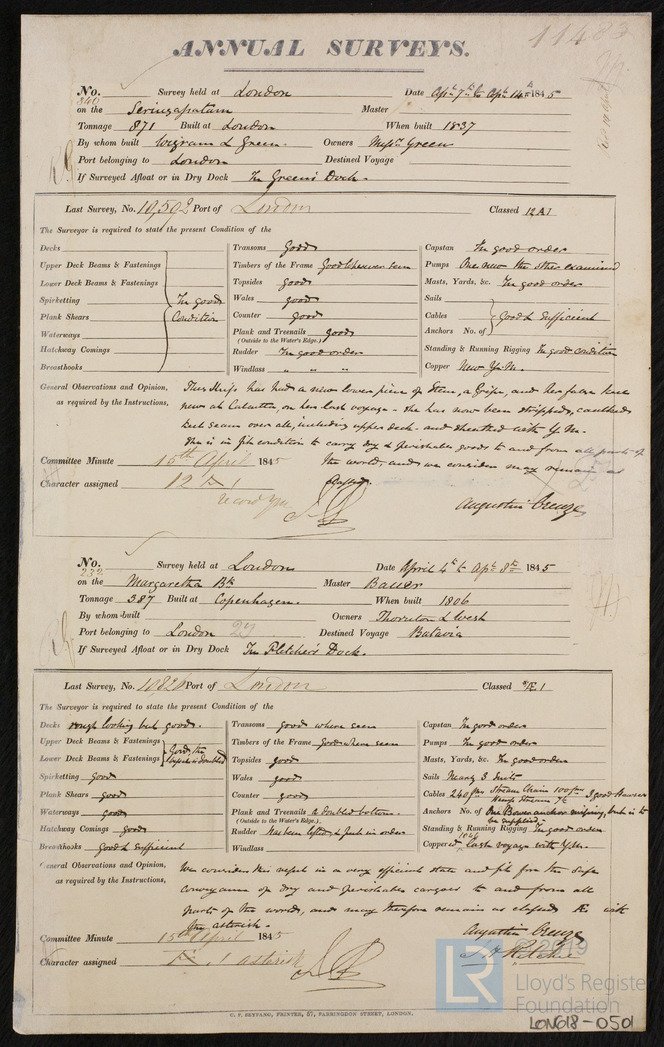 11483
ANNUAL SURVEYS.
No. 340 Survey held at London Date Apl 7th to Apl 14th 1845
on the Seringapatam Master
Tonnage 871 Built at London When built 1837
By whom built Wigram & Green Owners Messrs Green
Port belonging to London Destined Voyage
If Surveyed Afloat or in Dry Dock In Green's Dock.
Last Survey, No. 10,592 Port of London Classed 12 A 1
The Surveyor is required to state the present Condition of the
Decks Transoms good Capstan In good order
Upper Deck Beams & Fastenings Timbers of the Frame Good wherever seen Pumps One new the other examined
Lower Deck Beams & Fastenings Topsides good Masts, Yards, &c. In good order
Spirketting In good Wales good Sails
Plank Shears Condition Counter good Cables Good & Sufficient
Waterways Plank and Treenails good Anchors No. of
(Outside to the Water's Edge.)
Hatchway Comings Rudder In good order Standing & Running Rigging In good condition
Breasthooks Windlass " " " Copper New Y.M.
General Observations and Opinion, This Ship has had a new lower piece of Stem, a Gripe, and her false keel
as required by the Instructions, new at Calcutta, on her last voyage - she has now been stripped, caulked
each seam over all, including upper deck - and sheathed with Y.M.
She is in fit condition to carry dry & perishable goods to and from all parts of
Committee Minute 15th April 1845 the world, and we consider may remain as
Character assigned 12 A 1 Classed.
record Ym Augustin Creuze
No. 232 Survey held at London Date April 4th to Apl 8th 1845
on the Margaretha Bk Master Bauer
Tonnage 387 Built at Copenhagen. When built 1806
By whom built Owners Thornton & West
Port belonging to London 27 Destined Voyage Batavia
If Surveyed Afloat or in Dry Dock In Fletcher's Dock.
Last Survey, No. 10826 Port of London Classed *Æ 1
The Surveyor is required to state the present Condition of the
Decks rough looking but good. Transoms good where seen Capstan In good order
Upper Deck Beams & Fastenings Good, the Timbers of the Frame Good where seen Pumps In good order
Lower Deck Beams & Fastenings is doubled Topsides good Masts, Yards, &c. In good order
Spirketting good Wales good Sails Nearly 3 Suits
Plank Shears good Counter good Cables 240 fms Stream Chain 100 fms 3 good Hawsers
Hemp Stream 7in
Waterways good Plank and Treenails a doubled bottom. Anchors No. of One Bower anchor missing, but is to
(Outside to the Water's Edge.) be supplied.
Hatchway Comings good Rudder has been lifted & put in order Standing & Running Rigging In good order
Breasthooks Good & Sufficient Windlass Coppered last voyage with Y.M.
General Observations and Opinion, We consider this vessel in a very efficient state and fit for the safe
as required by the Instructions, conveyance of dry and perishable cargoes to and from all
parts of the world, and may therefore remain as classed Æ with
the asterisk.
Committee Minute 15th April 1845 Augustin Creuze
Character assigned Æ 1 asterisk J H Ritchie
C. F. SEYFANG, PRINTER, 57, FARRINGDON STREET, LONDON.
© 2019
LR
Lloyd's Register
Foundation
LON618-0501